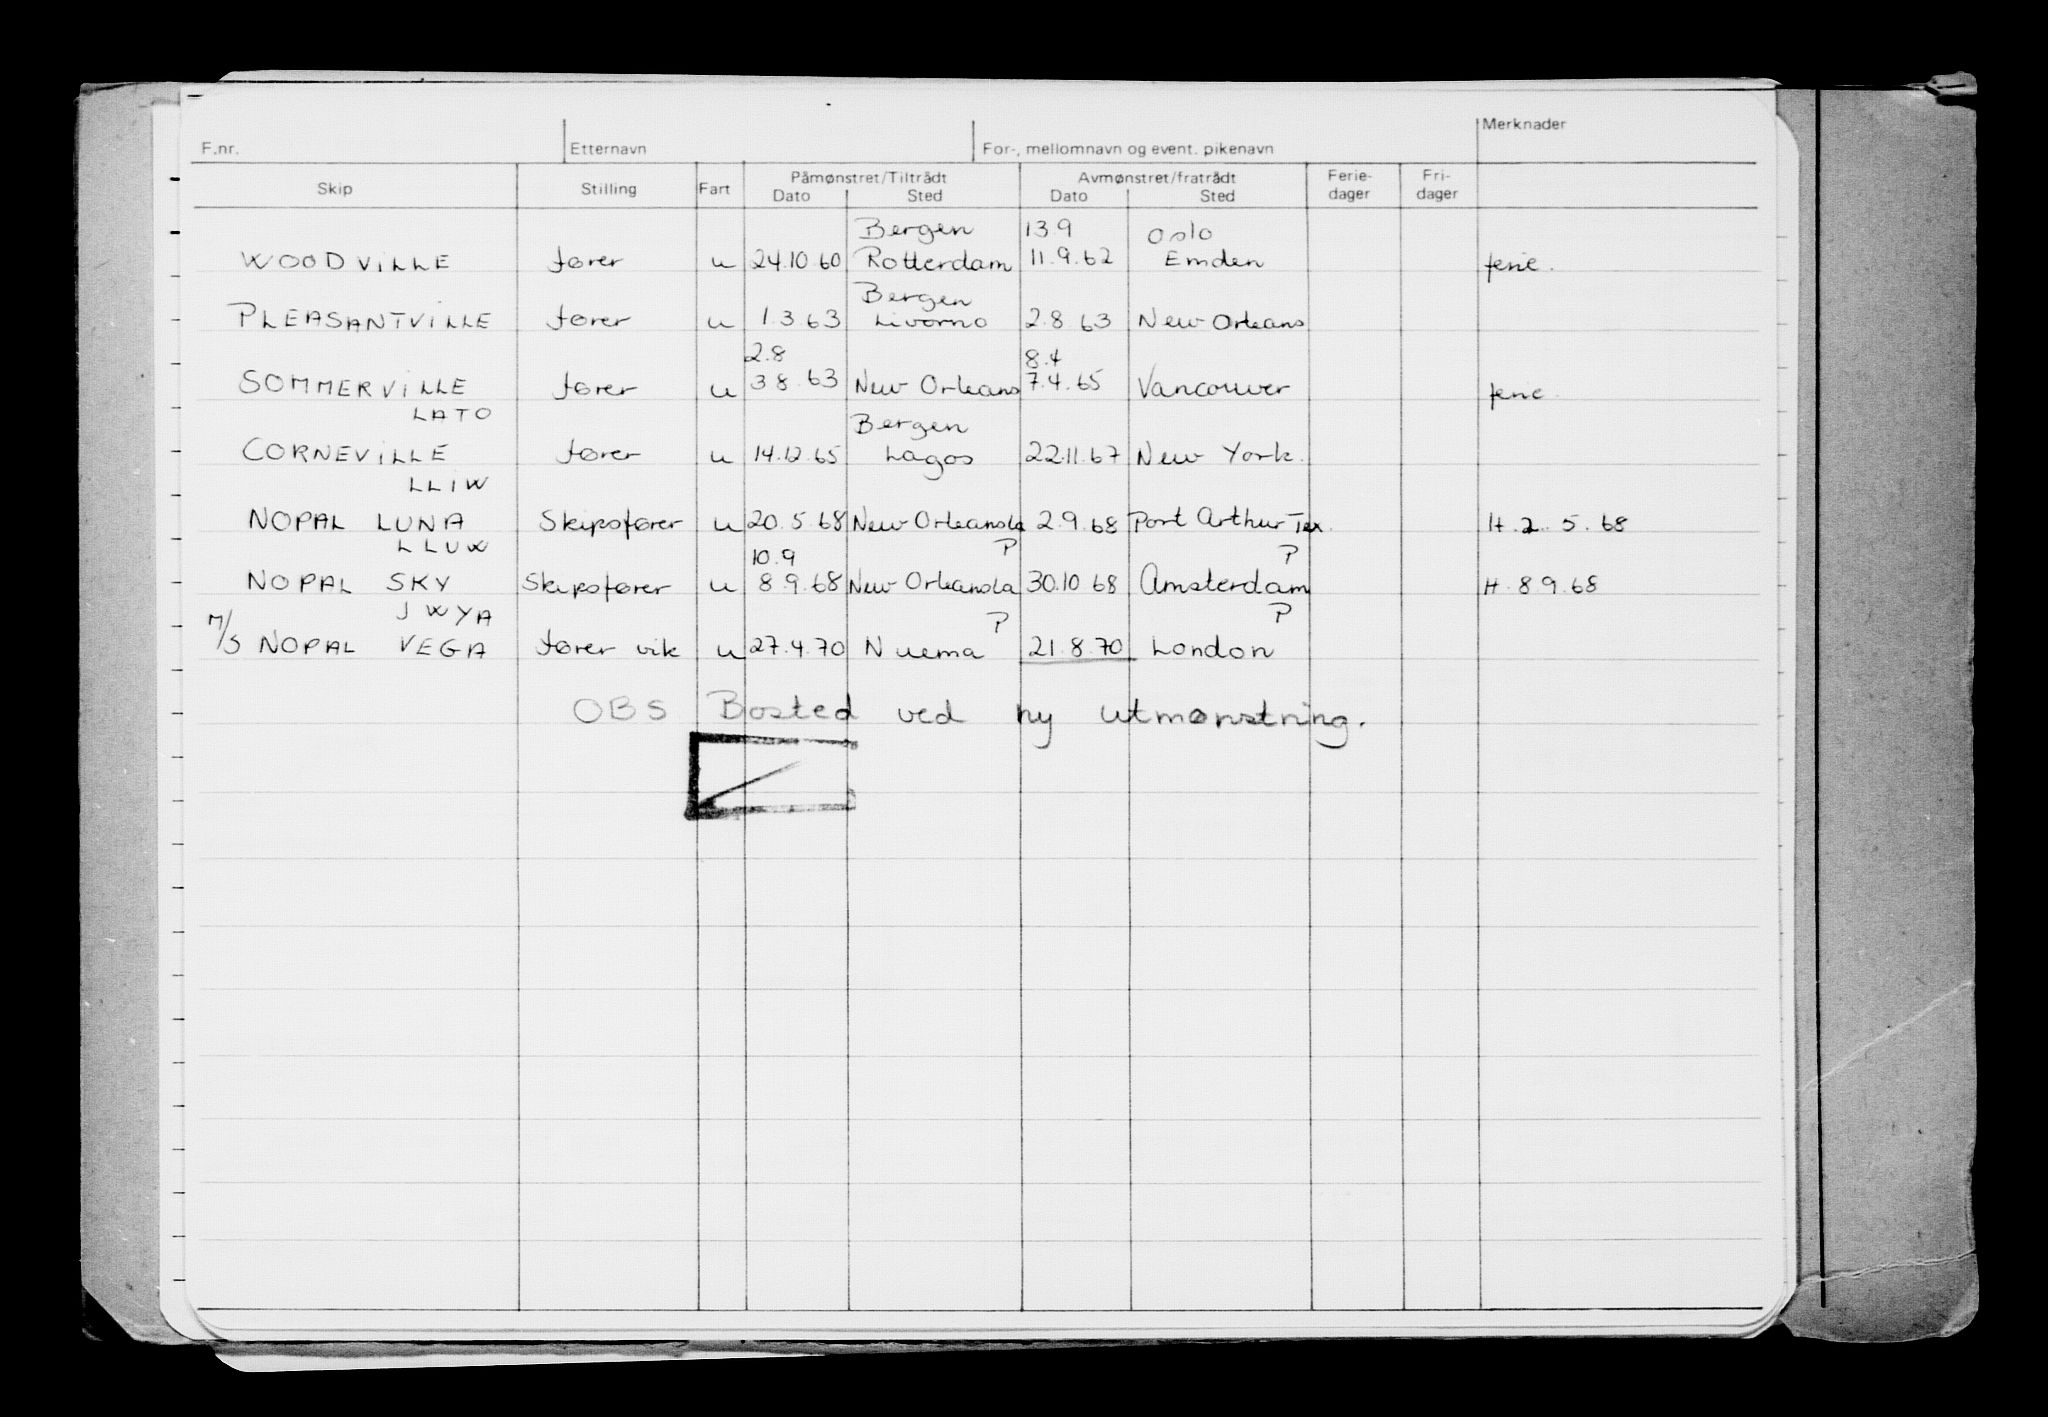 F.nr. Etternavn For-, mellomnavn og event. pikenavn Merknader
Skip Stilling Fart Påmønstret/Tiltrådt Avmønstret/fratrådt Ferie- Fri-
Dato Sted Dato Sted dager dager
Bergen 13.9 Oslo
WOODVILLE fører u 24.10 60 Rotterdam 11.9.62 Emden ferie.
Bergen
PLEASANTVILLE fører u 1.3 63 Livorno 2.8 63 New Orleans
2.8 8.4
SOMMERVILLE fører u 3 8. 63 New Orleans 7.4.65 Vancouver ferie
LATO Bergen
CORNEVILLE fører u 14.12.65 Lagos 22.11.67 New York.
LLIW
NOPAL LUNA Skipsfører u 20.5.68 New Orleansla 2.9.68 Port Arthur Tex. H.2.5.68
LLUW 10.9 P P
NOPAL SKY Skipsfører u 8.9.68 New Orleansla 30.10 68 Amsterdam H.8 9.68
JWYA P P
M/S NOPAL VEGA fører vik u 27.4.70 Nuema 21.8.70 London
OBS Bosted ved ny utmønstring.